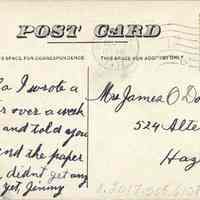 POST CARD
THIS SPACE FOR CORRESPONDENCE.
THIS SPACE FOR ADDRESS ONLY.
a I wrote a
r over a week
and told you
end the paper
, didn't get any
yet, Jinny
Mrs James O Do
524 Alte
Hag